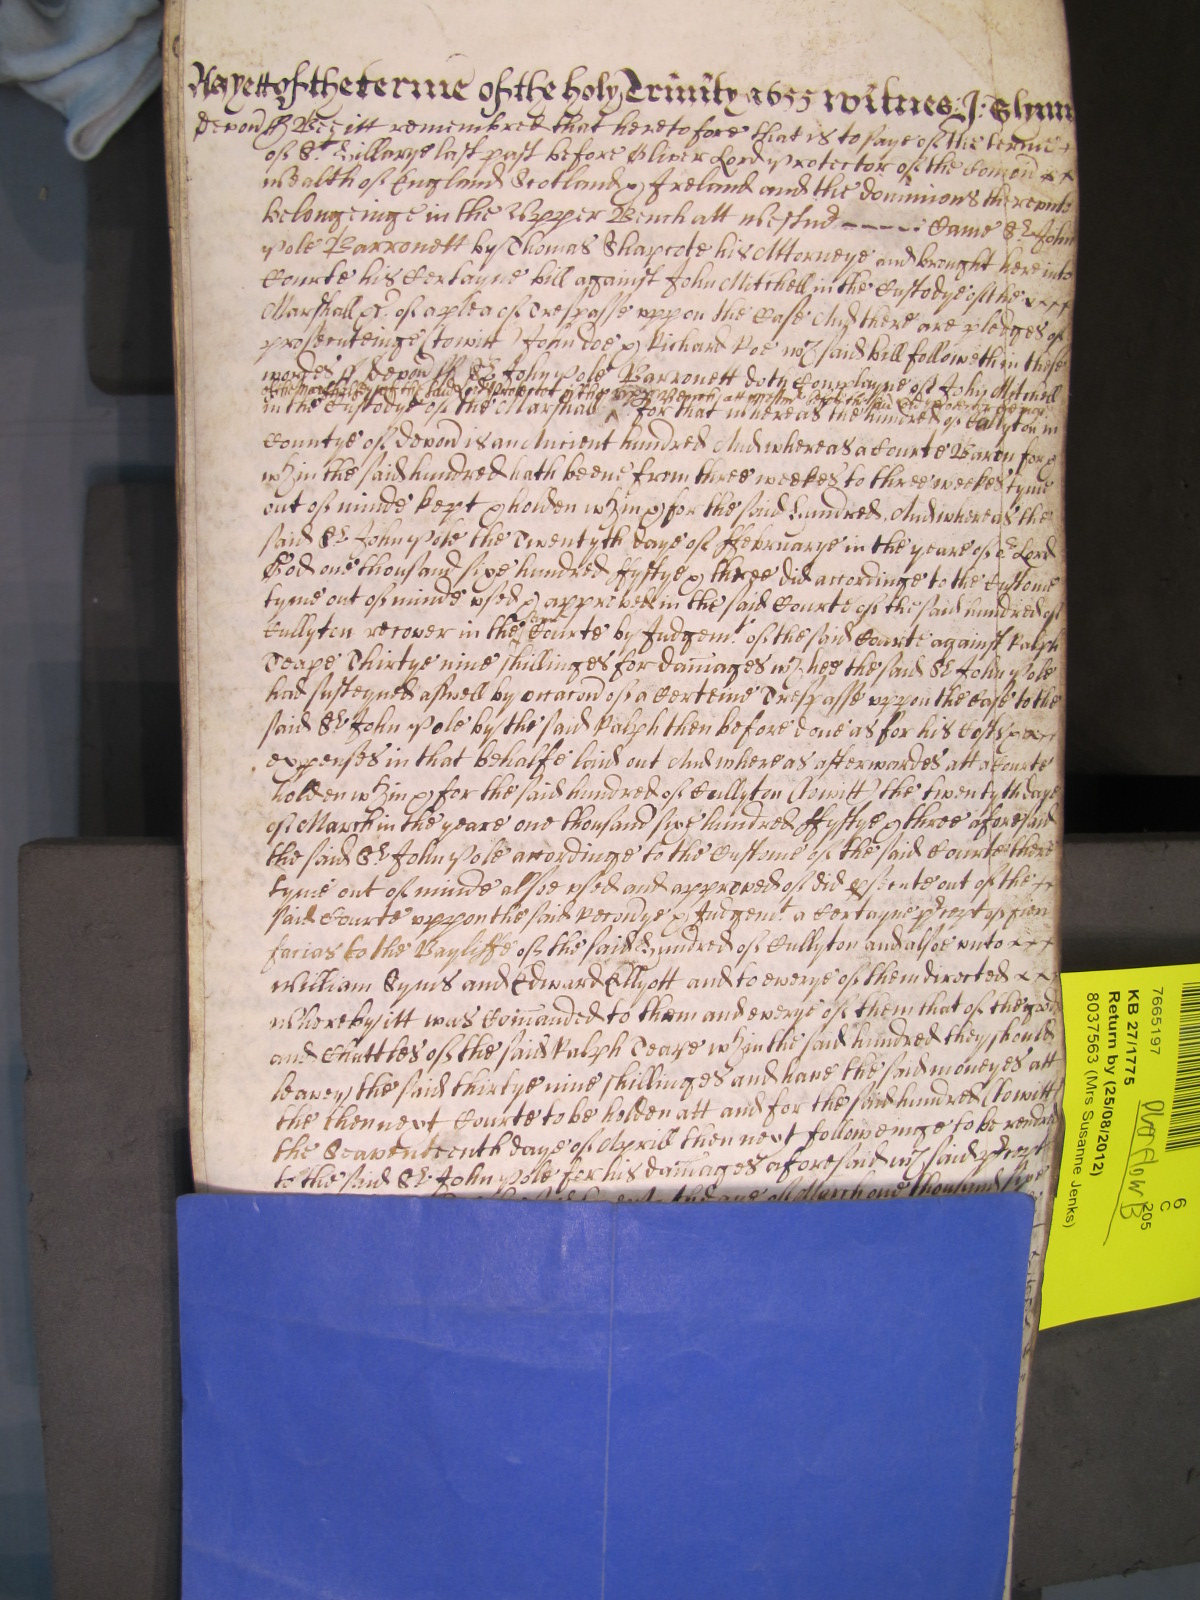 As yett of the terme of the holy Trinity 1655 Witnes: J: Glynn
Devon ss Bee itt remembred that heretofore that is to saye of the terme
of St. Hillarye last past before Oliver Lord Protector of the Comon
wealth of England Scotland & Ireland and the dominions thereunto
belongeinge in the Upper Bench att Westmd ----: Came Sr. John
Pole Barronett by Thomas Shapcote his Attorneye and brought here into
Courte his Certayne bill against John Mitchell in the Custodye of the
Marshall &c. of a plea of Trespasse uppon the Case And there are pledges of
prosecuteinge (towitt) John doe & Richard Roe wch said bill followeth in these
wordes ss devon ss Sr. John Pole Barronett doth Complayne of John Mitchell
of the Marshallsey of the said Lord Protector in the Upper Bench att Westm before the said Lord Protector
in the Custodye of the Marshall for that whereas the hundred of Cullyton in
Countye of Devon is an Ancient hundred And whereas a Courte Baron for &
wthin the said hundred hath beene from three weekes to three weekes tyme
out of minde kept & holden wthin & for the said hundred, And whereas the
said Sr. John Pole the Twentyth daye of ffebruarye in the yeare of or. Lord
God one thousand sixe hundred ffyftye & three did accordinge to the Custome
tyme out of minde used & approved in the said Courte of the said hundred of
Cullyton recover in the same Courte by Judgemt. of the said Courte against Ralph
Teape Thirtye nine shillinges for damages wch hee the said Sr. John Pole
had susteyned aswell by occacon of a Certeine Trespasse uppon the Case to the
said Sr. John Pole by the said Ralph then before done as for his Costs &
expenses in that behalfe laid out And whereas afterwardes att a Courte
holden wthin & for the said hundred of Cullyton (towitt) the twentyth daye
of March in the yeare one thousand sixe hundred ffyftye & three aforesaid
the said Sr. John Pole accordinge to the Custome of the said Courte there
tyme out of minde alsoe used and approved of did psecute out of the
said Courte uppon the said Recoverye & Judgemt. a Certayne pcept of fieri
facias to the Bayliffe of the said hundred of Cullyton and alsoe unto
William Syms and Edward Ellyott and to everye of them directed
Whereby itt was Comanded to them and everye of them that of the goods
and Chattles of the said Ralph Teape wthin the said hundred they should
leavey the said thirtye nine shillinges and have the said moneyes att
the then next Courte to be holden att and for the said hundred (towitt)
the Seaventeenth daye of Aprill then next followeinge to be rendred
to the said Sr. John Pole for his damages aforesaid wch said pcept
daye of March one thousand sixe
7665197
KB 27/1775
Return by (25/08/2012)
8037563 (Mrs Susanne Jenks)
6
C
205